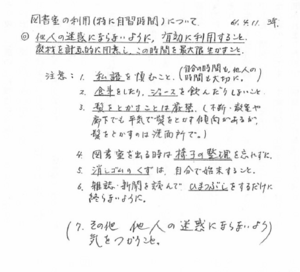 図書室の利用(特に自習時間)について
◎ 他人の迷惑にならないように, 有効に利用すること.
教材を計画的に用意し, この時間を最大限生かすこと.
注意: 1. 私語を慎むこと (自分の時間も, 他人の時間も大切に.)
2. 食事をしたり, ジュースを飲んだりしないこと.
3. 髪をとかすことは厳禁. (不断・教室や
廊下でも平気で髪をとかす傾向があるが,
髪をとかすのは洗面所で.)
4. 図書室を出る時は椅子の整理を忘れずに.
5. 消しゴムのくずは, 自分で始末すること.
6. 雑誌・新聞を読んでひまつぶしをするだけに
終らないように.
(7. その他 他人の迷惑にならないよう
気をつかうこと.